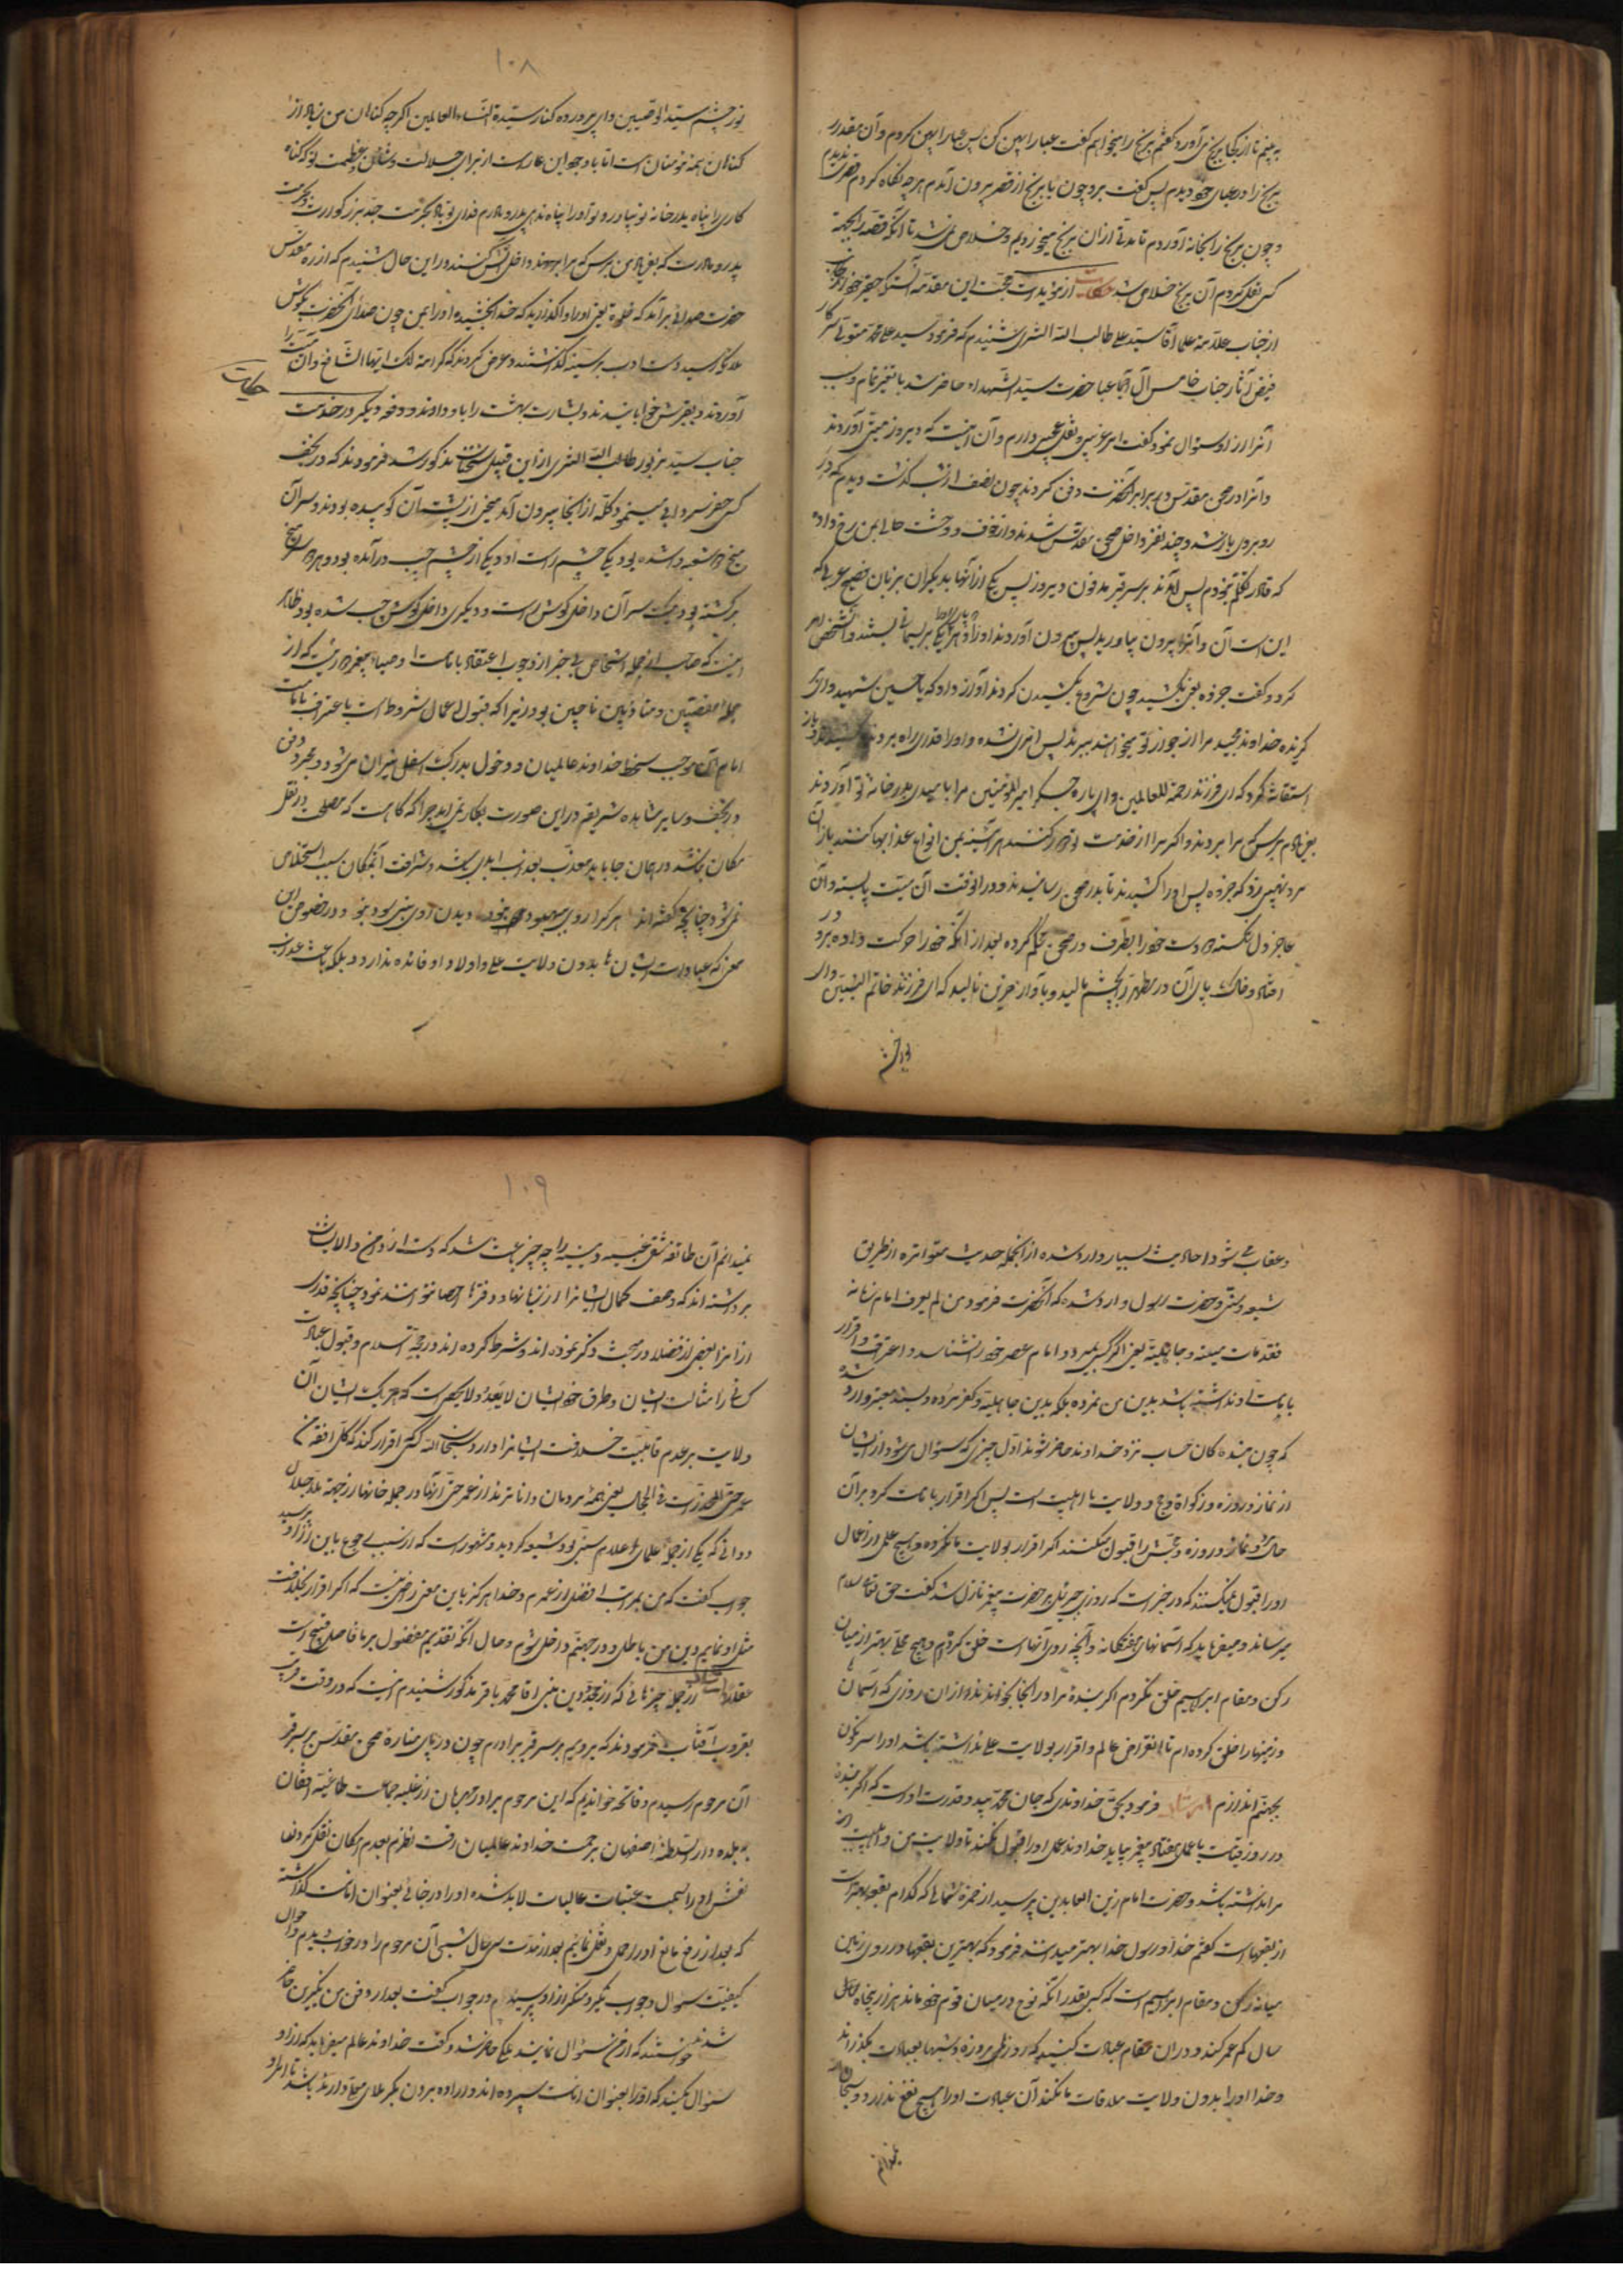 به بینم تا از کجا برنج می آورد گفتم برنج را میخواهم گفت عبا را پهن کن پس عبا را پهن کردم و آن مقدار
برنج را در عبای خود دیدم پس گفت برو چون با برنج از قصر بیرون آمدم هر چه نگاه کردم قصری ندیدم
و چون برنج را بخانه آوردم تا مدتی از آن برنج میخوردیم و خلاص نمی شد تا آنکه قصه را بجهة
کسی نقل کردم آن برنج خلاص شد حکایت از مؤیدات صحت این مقدمه آنست که حقیر خود
از جناب علامه علما آقا سید علی طالب الله الثری شنیدم که فرمود سید علی محمد متولی سرکار
فیض آثار جناب خامس آل عبا حضرت سید الشهداء حاضر شد با تغیر تمام و سبب
آنرا از او سؤال نمود گفت امر غریب و نقل عجیبی دارم و آن اینست که دیروز میتی آوردند
و آنرا در صحن مقدس در برابر آنحضرت دفن کردند چون نصف از شب گذشت دیدم که در
روبروی باز شد و چند نفر داخل صحن مقدس شدند و از خوف و وحشت حالی بمن رخ داد
که قادر بتکلم نبودم پس آمدند بر سر قبر مدفون دیروز پس یکی از آنها بدیگران بزبان فصیح عربی گفت
این است آن و آنرا بیرون بیاورید پس بیرون آوردند او را و هر دو پای او را بریسمانی بستند و آن شخص امر
کرد و گفت جروه یعنی بکشید چون شروع بکشیدن کردند آواز داد که یا حسین شهید و ای
گریزنده خداوند مجید مرا از جوار تو میخواهند ببرند پس اثری نشد و او را قدری راه بردند باز
استغاثه کرد که ای فرزند رحمة للعالمین و ای پاره جگر امیر المؤمنین مرا بامیدی بدر خانه تو آوردند
بفریادم برس که مرا بردند و اگر مرا از خدمت تو دور کنند هر آینه بمن انواع عذابها کنند باز آن
مرد نهیبی زد که جروه پس او را کشیدند تا بدر صحن رسانیدند و در آنوقت آن میت پا بسته و آن
عاجز دل شکسته دو دست خود را بطرف در صحن محکم کرده بعد از آنکه خود را حرکت داده برو در
افتاد و خاک پای آن در مطهر را بچشم مالید و بآواز حزین نالید که ای فرزند خاتم النبیین و ای
نور چشم
۱۰۸
نور چشم سید الوصیین و ای پرورده کنار سیدة النساء العالمین اگر چه گناهان من زیاد از
گناهان همه مؤمنان است اما با وجود این عار است از برای جلالت و شأن و عظمت تو که گناه
کاری را پناه بدر خانه تو بیاورد و تو او را پناه ندهی پدر و مادرم فدای تو باد بحرمت جد بزرگوارت و بحرمت
پدر و مادرت که بفریاد من برس که مرا بردند و داخل آتش کنند در این حال شنیدم که از روضه مقدس
حضرت صدائی برآمد که خلوه یعنی او را واگذارید که خدا بخشیده او را بمن چون صدای آنحضرت بگوش
ملائکه رسید دست ادب بر سینه گذاشتند و عرض کردند که کرامة لک ایها الشافع و آن میت را
آوردند و بقبرش خوابانیدند و بشارت بهشت را باو دادند و دفعه دیگر در خدمت حکایت
جناب سید مزبور طالب الله الثری از این قبیل سخنان مذکور شد فرمودند که در نجف
کسی حفر سردابی مینمود کله از آنجا بیرون آمد میخی از پشت آن کوبیده بودند و سر آن
میخ دو شعبه داشته بود یکی چشم راست او و یکی از چشم چپ درآمده بود و هر دو سر میخ
برگشته بود و یک سر آن داخل گوش راست و دیگری داخل گوش چپ شده بود ظاهر
اینست که صاحب آن از جمله اشخاص بی خبر از وجوب اعتقاد بامامت اوصیاء پیغمبر در نیت که از
جمله مبغضین و معاندین ناجین بود زیرا که قبول اعمال مشروط است باعتراف بامامت
امام و آن موجب سخط خداوند عالمیان و دخول بدرک اسفل نیران می شود و بمجرد دفن
در نجف و سایر مشاهد شریفه در این صورت بکار نمی آید چرا که گاه است که مصلحت در نقل
مکان باشد در همان جا باید معذب بعذاب ابدی باشد و شرافت آنمکان سبب استخلاص
نمی شود چنانچه گفته اند هر که را روی ببهبود نبود دیدن روی نبی سود نبود و در خصوص این
معنی که عبادات ایشان ها بدون ولایت علی و اولاد او فائده ندارد بلکه باعث عذاب
و عقاب می شود احادیث بسیار وارد شده از آنجمله حدیث متواتره از طریق
شیعه و سنی و حضرت رسول وارد شده که آنحضرت فرمود من لم یعرف امام زمانه
فقد مات میتة جاهلیة یعنی اگر کسی بمیرد و امام عصر خود را نشناسد و اعتراف و اقرار
بامامت او نداشته باشد بدین من نمرده بلکه بدین جاهلیة و کفر مرده و بسند معتبر وارد شده
که چون بنده گان حساب نزد خداوند حاضر شوند اول چیزی که سؤال می شود از ایشان
از نماز و روزه و زکواة و حج و ولایت با اهلبیت است پس اگر اقرار بامامت کرد بر آن
حال و نماز و روزه و حجش را قبول میکنند اگر اقرار بولایت ما نکرده و هیچ عملی از اعمال
او را قبول نمیکنند که در خبر است که روزی جبرئیل بر حضرت پیغمبر نازل شد گفت حق تعالی سلام
میرساند و میفرماید که آسمانهای هفتگانه و آنچه در آنهاست خلق کردم و هیچ محلی بهتر از میان
رکن و مقام ابراهیم خلق نکردم اگر بندۀ مرا در آنجا بخواند از آن روزی که آسمان ها
و زمینها را خلق کرده ام تا انقراض عالم و اقرار بولایت علی نداشته باشد او را سرنگون
بجهنم اندازم فرمود بحق خداوندی که جان محمد بید و قدرت اوست که اگر بنده
در روز قیامت با عمل هفتاد پیغمبر بیاید خداوند عمل او را قبول نمیکند تا ولایت من و اهلبیت
مرا نداشته باشد و حضرت امام زین العابدین پرسید از حمزه ثمالی که کدام بقعه بهتر است
از بقعهاست گفتم خدا و رسول خدا بهتر میدانند فرمود که بهترین بقعها در روی زمین
میانه رکن و مقام ابراهیم است که کسی بقدر آنکه نوح در میان قوم خود ماند هزار و پنجاه کم
سال کم عمر کند و در آن مقام عبادت کنید که روزها بروزه و شبها بعبادت بگذراند
و خدا او را بدون ولایت ملاقات ما کند آن عبادت او را هیچ نفع ندارد و سبحان
نمیدانم
۱۰۹
نمیدانم آن طائفه شقی خبیثه و سنیه را چه چیز باعث شد که دست از دامن والا
برداشته اند که وصف کمال ایشانرا در زبانها و دفترها احصا نتوانستند نمود چنانچه قدری
از آنرا بعضی از فضلا در مبحث ذکر نموده اند و شرط کرده اند در صحة اسلام و قبول عبادت
کسانی را مثالب ایشان و طرق خود ایشان لا یعد و لا یحصی است که هر یک ایشان از آن
دلالت بر عدم قابلیت خلافت ایشانرا دارد سبحان الله کسی اقرار کند که کل افقه من
عمر حتی المخدرات فی الحجال یعنی همه مردمان داناترند از عمر حتی آنها در حجله خانها از جمله ملا جلال
دوانی که یکی از جمله علمای اعلام سنی بود شیعه گردید و مشهور است که از سبب رجوع باین از او پرسید
جواب گفت که من بمراتب افضل از عمرم و خدا هرگز باین معنی راضی نیست که اگر اقرار بخلافت
مثل او نمایم دین من باطل و در جهنم داخل شوم و حال آنکه تقدیم مفضول بر فاضل قبیح است
عقلا حکایت از جمله چیزهائی که از مجدد دین مبین آقا محمد باقر مذکور شنیدم اینست که در وقت قریب
بغروب آفتاب فرمودند که برویم بر سر قبر برادرم چون در پای مناره صحن مقدس بر سر قبر
آن مرحوم رسیدم و فاتحه خواندیم که این مرحوم برادر مهربان از غلبه جماعت طاغیه افغان
ببلده دار السلطنه اصفهان برحمت خداوند عالمیان رفت نظر بعدم امکان نقل کردن
نعش او را بسمت عتبات عالیات لابد شده او را در خانه بعنوان امانت گذاشته
که بعد از رفع مانع او را حمل و نقل نمائیم بعد از مدت سی سال شبی آن مرحوم را در خواب دیدم و احوال
کیفیت سؤال و جواب نکیر و منکر از او پرسیدم در جواب گفت بعد از دفن من نکیرین حاضر
شدند خواستند که از من سؤال نمایند ملکی حاضر شد و گفت خداوند عالم میفرماید که از او
سؤال مکنید که او را بعنوان امانت سپرده اند و اراده بردن بکربلای معلا دارند باشد تا او را